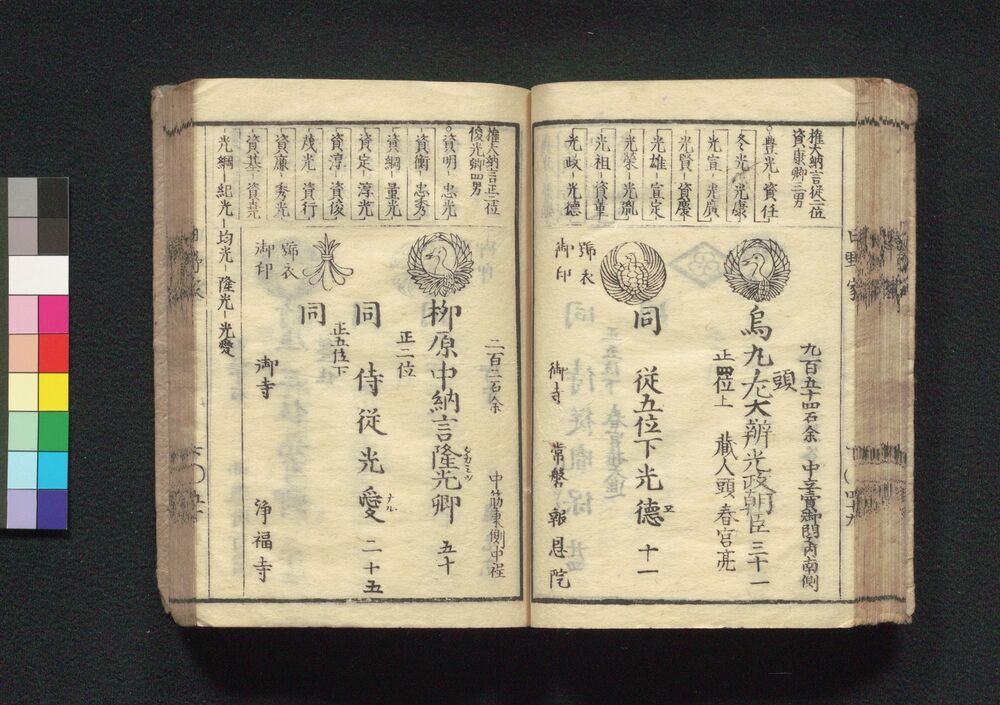 権大納言従一位
資康卿三男
豊光-資任
冬光-光康
光宣-光廣
光賢-資慶
光雄-宣定
光榮-光胤
光祖-資董
光政-光徳
九百五十四石余 中立賣御門内南側
頭
烏丸左大辨光政朝臣 三十一
正四位上 蔵人頭 春宮亮
同 従五位下光徳 十一
號衣
御印
御寺 常盤 報恩院
権大納言正二位
俊光卿四男
資明-忠光
資衡-忠秀
資綱-量光
資定-淳光
資淳-資俊
茂光-資行
資廉-秀光
資基-資堯
光綱-紀光-均光-隆光-光愛
二百二石余 中筋東側中程
柳原中納言隆光卿 五十
正二位
同 侍従光愛 二十五
正五位下
同
號衣
御印
御寺 浄福寺
日野家